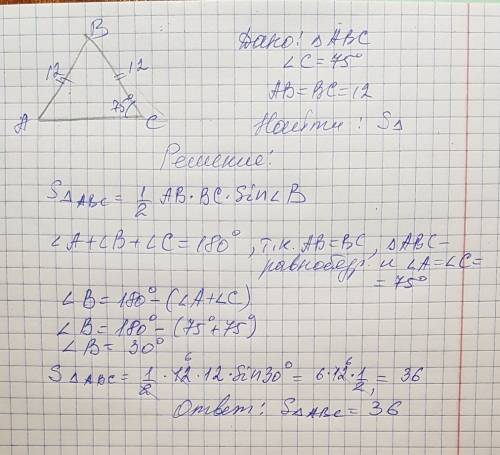 B
12
12
75°
A
C
Дано: △ABC
∠C = 75°
AB = BC = 12
Найти: S△
Решение:
S△ABC = 1/2 AB · BC · Sin∠B
∠A + ∠B + ∠C = 180°, т.к. AB = BC, △ABC –
равнобедр. и ∠A = ∠C =
= 75°
∠B = 180° – (∠A + ∠C)
∠B = 180° – (75° + 75°)
∠B = 30°
S△ABC = 1/2 · 12 6 · 12 · Sin30° = 6 · 12 6 · 1/2 = 36
Ответ: S△ABC = 36